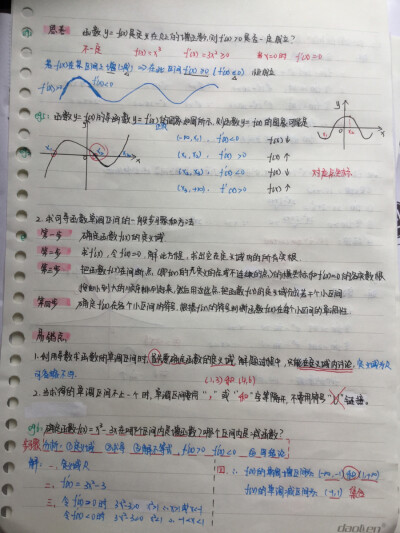 思考 函数 y=f(x)是定义在R上的增函数,则f'(x)>0是否一定成立?
不一定 f(x)=x³ f'(x)=3x²≥0 当x=0时 f'(x)=0
若f(x)在某区间上增(减) ⇒ 在此区间f'(x)≥0 (f'(x)≤0)恒成立
f'(x)>0 f'(x)<0
eg1: 函数y=f(x)的导函数y=f'(x)的图象如图所示,则函数y=f(x)的图象可能是
(-∞, x₁), f'(x)<0 f(x)↓
(x₁, x₂) f'(x)>0 f(x)↑
(x₂, x₃) f'(x)<0 f(x)↓
(x₃, +∞) f'(x)>0 f(x)↑
2. 求可导函数单调区间的一般步骤和方法
第一步 确定函数f(x)的定义域
第二步 求f'(x),令f'(x)=0,解此方程,求出它在定义域内的所有实根
第三步 把函数f(x)在间断点(即f(x)的无定义的点)的横坐标和f'(x)=0的各实数根
按由小到大的顺序排列起来,然后用这些点,把函数f(x)的定义域分成若干个小区间
第四步 确定f'(x)在各个小区间的符号,根据f'(x)的符号判断函数f(x)在每个小区间的单调性
易错点
1. 利用导数求函数的单调区间时,首先要确定函数的定义域 解题过程中,只能在定义域内讨论,定义域为R
可省略不写.
(1,3)和(4,6)
2. 当求得的单调区间不止一个时,单调区间要用“,”或“和”字等隔开,不要用符号“∪”连接.
eg2: 确定函数f(x)=x³-3x在哪个区间内是增函数?哪个区间内是减函数?
解: 一、定义域R 四、∴ f(x)的单调递增区间为 (-∞,-1)和(1,+∞)
二、f'(x)=3x²-3 f(x)的单调递减区间为 (-1,1)
三、令f'(x)>0时 3x²-3>0 x²>1 ∴x>1或x<-1
令f'(x)<0时 3x²-3<0 x²<1 ∴-1<x<1